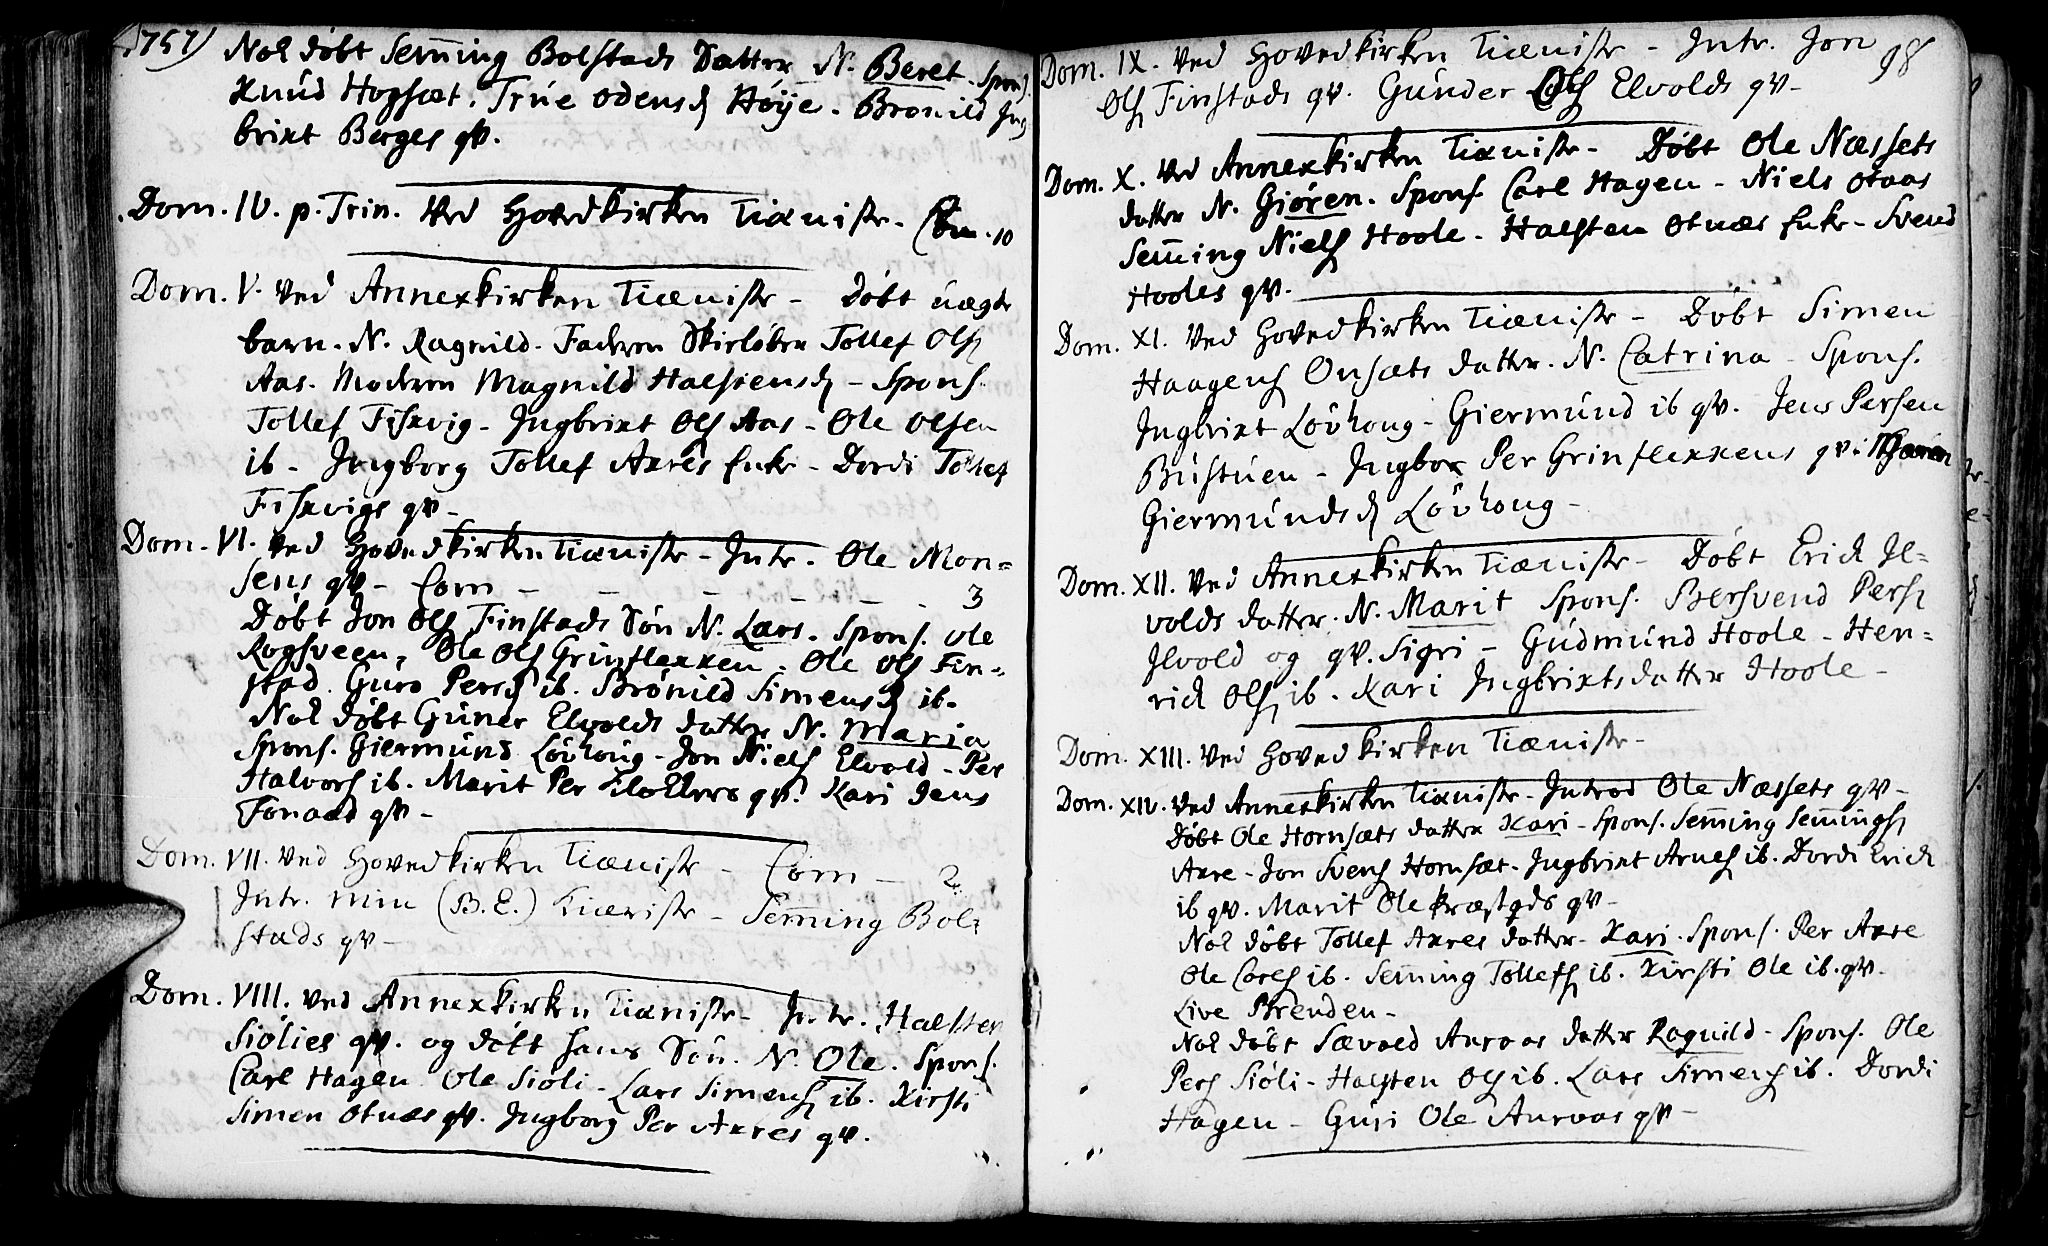 1757)
Nok døbt Semming Bolstads Datter N. Beret. Spons.
Knud Hogsæt. True Odens D. Høÿe. Bronild Ing
brixt Berges qv.
Dom. IV. p. Trin. Ved Hovedkirken Tieniste - Com. 10
Dom. V. Ved Annexkirken Tieniste - Døbt uægte
barn. N. Ragnild. Faderen Skiløber Tollef Ols.
Aas. Moderen Magnild Halstensd. - Spons.
Tollef Fiskvig - Ingbrixt Ols. Aas - Ole Olsen
ib - Ingborg Tollef Axres Enke - Dordi Tollef
Fiskvigs qv -
Dom. VI. Ved Hovedkirken Tieniste - Intr. Ole Mon=
sens qv - Com - - - - - 3
Døbt Jon Ols. Finstads Søn N. Lars. Spons. Ole
Rogsveen, Ole Ols. Grinflexken. Ole Ols. Fin=
stad. Guro Persd. ib. Brønild Simensd. ib.
Nok døbt Guner Elvolds datter N. Maria
Spons. Giermund Løvhoug - Jon Niels. Elvold - Per
Halvors. ib. Marit Per qv. Kari Jens
Fonaas qv -
Dom. VII. Ved Hovedkirken Tieniste - Com - 2.
Intr. min (B.E.) Kiæriste - Semming Bol=
stads qv -
Dom. VIII. Ved Annexkirken Tieniste - Intr. Halsten
Siølies qv. og døbt hans Søn. N. Ole. Spons.
Carl Hagen. Ole Siøli - Lars Simens. ib. Kirsti
Simen Otnæs qv. Ingborg Per Axres qv.
98
Dom. IX. Ved Hovedkirken Tieniste - Intr. Jon
Ols. Finstads qv. Gunder Elvolds qv -
Dom. X. Ved Annexkirken Tieniste - Døbt Ole Næssets
datter N. Giøren. Spons. Carl Hagen - Niels Otnas
Semming Niels. Hoole - Halsten Otnæs Enke - Svend
Hooles qv.
Dom. XI. Ved Hovedkirken Tieniste - Døbt Simen
Haagens. Onsæts datter. N. Catrina - Spons.
Ingbrixt Løvhoug - Giermund ib qv. Jens Persen
Bustuen - Ingbor Per Grinflexkens qv.
Giermundsd. Løvhoug -
Dom. XII. Ved Annexkirken Tieniste - Døbt Erick Il=
volds datter. N. Marit Spons. Bersvend Pers.
Ilvold og qv. Sigri - Gudmund Hoole - Hen=
rick Ols. ib. Kari Ingbrixtsdatter Hoole -
Dom. XIII. Ved Hovedkirken Tieniste -
Dom. XIV. Ved Annexkirken Tieniste - Introd Ole Næssets qv -
Døbt Ole Hornsæts datter Kari - Spons. Semming Semmings.
Axre - Jon Svens. Hornsæt - Ingbrixt Arnes. ib. Dordi Erick
ib qv. Marit Ole Kræstads qv -
Nok døbt Tollef Axres datter - Kari. Spons. Per Axre
Ole Carls. ib. Semming Tollefs. ib. Kirsti Ole ib. qv.
Live Brenden -
Nok døbt Sævald Auroas datter Ragnild - Spons. Ole
Pers. Siøli - Halsten Ols. ib. Lars Simens. ib. Dordi
Hagen - Guri Ole Auroas qv -